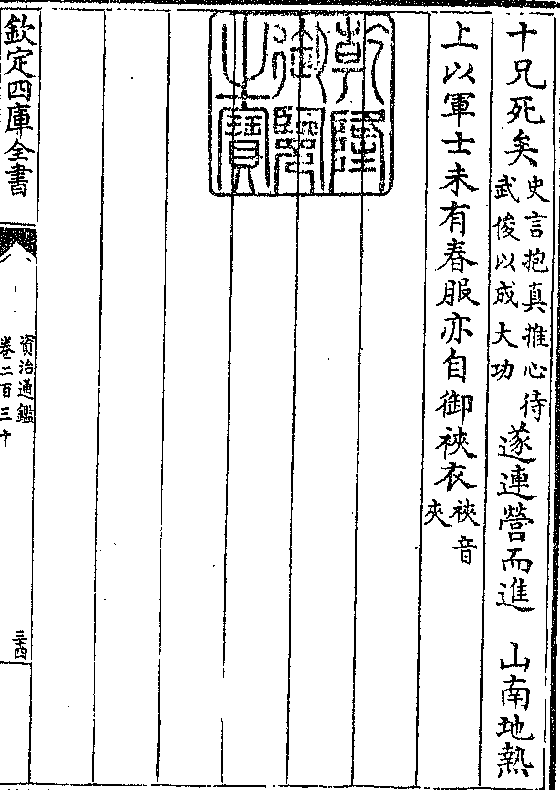 十兄死矣史言抱真推心待武俊以成大功遂連營而進　山南地熱
上以軍士未有春服亦自御裌衣裌音夾
乾隆御覽之寶
欽定四庫全書
資治通鑑
卷二百三十
三十四